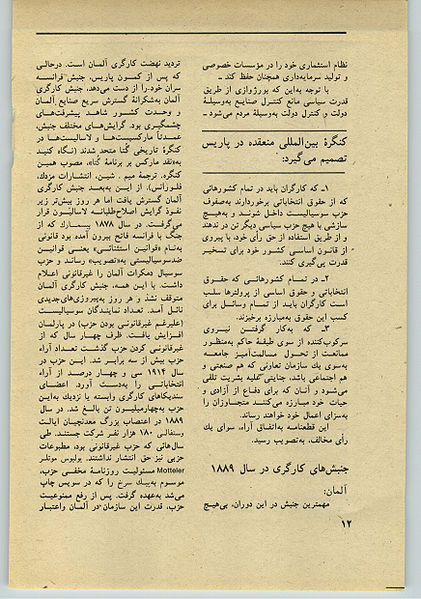 نظام استثماری خود را در مؤسسات خصوصی
و تولید سرمایه‌داری همچنان حفظ کند ـ
با توجه به‌این که بورژوازی از طریق
قدرت سیاسی مانع کنترل صنایع به‌وسیلهٔ
دولت و کنترل دولت به‌وسیلهٔ مردم می‌شود ـ
کنگرهٔ بین‌المللی منعقده در پاریس
تصمیم می‌گیرد:
۱ـ که کارگران باید در تمام کشورهائی
که از حقوق انتخاباتی برخوردارند به‌صفوف
حزب سوسیالیست داخل شوند و به‌هیچ
سازشی با هیچ حزب سیاسی دیگر تن در ندهند
و از طریق استفاده از حق رأی خود، با پیروی
از قانون اساسی کشور خود برای تسخیر
قدرت پی‌گیری کنند.
۲ـ در تمام کشورهائی که حقوق
انتخاباتی و حقوق اساسی از پرولترها سلب
است کارگران باید از تمام وسائل برای
کسب این حقوق به‌مبارزه برخیزند.
۳ـ که به‌کار گرفتن نیروی
سرکوب‌کننده از سوی طبقهٔ حاکم به‌منظور
ممانعت از تحول مسالمت‌آمیز جامعه
به‌سوی یک سازمان تعاونی که هم صنعتی و
هم اجتماعی باشد، جنایتی علیه بشریت تلقی
می‌شود و آنان که برای دفاع از آزادی و
حیات خود مبارزه می‌کنند متجاوزان را
به‌سزای اعمال خود خواهند رساند.
این قطعنامه به‌اتفاق آراء، سوای یک
رأی مخالف، به‌تصویب رسید.
جنبش‌های کارگری در سال ۱۸۸۹
آلمان:
مهمترین جنبش در این دوران، بی‌هیچ
تردید نهضت کارگری آلمان است. درحالی
که پس از کمون پاریس، جنبش فرانسه
سران خود را از دست می‌دهد، جنبش کارگری
آلمان به‌شکرانهٔ گسترش سریع صنایع آلمان
و وحدت کشور شاهد پیشرفت‌های
چشمگیری بود. گرایش‌های مختلف جنبش،
عمدتاً مارکسیست‌ها و لاسالیست‌ها در
کنگرهٔ تاریخی گتا متحد شدند (نگاه کنید
به‌«نقد مارکس بر برنامهٔ گتا»، مصوب همین
کنگره. ترجمهٔ میم . شین. انتشارات مزدک،
فلورانس). از این به‌بعد جنبش کارگری
آلمان گسترش یافت اما هر روز بیش‌تر زیر
نفوذ گرایش اصلاح‌طلبانه لاسالیون قرار
می‌گرفت. در سال ۱۸۷۸ بیسمارک که از
جنگ با فرانسه فاتح بیرون آمده بود قانونی
به‌نام «قوانین استثنائی» یعنی قوانین
ضدسوسیالیستی به‌تصویب رساند و حزب
سوسیال دمکرات آلمان را غیرقانونی اعلام
داشت. با این همه، جنبش کارگری آلمان
متوقف نشد و هر روز به‌پیروزی‌های‌جدیدی
نائل آمد. تعداد نمایندگان سوسیالیست
(علیرغم غیرقانونی بودن حزب) در پارلمان
افزایش یافت. ظرف چهار سال که از
غیرقانونی کردن حزب گذشت تعداد آراء
حزب بیش از سه برابر شد. این حزب در
سال ۱۹۱۴ سی و چهار درصد از آراء
انتخاباتی را به‌دست آورد. اعضای
سندیکاهای کارگری وابسته یا نزدیک به‌این
حزب به‌چهارمیلیون تن بالغ شد. در سال
۱۸۸۹ در اعتصاب بزرگ معدنچیان ایالت
وستفالی ۱۸۰ هزار نفر شرکت جستند. طی
سال‌هائی که حزب غیرقانونی بود، مطبوعات
حزبی نیز حق انتشار نداشتند. یولیوس موتلر
Motteler مسئولیت روزنامهٔ مخفی حزب،
موسوم به‌پیک سرخ را که در سویس چاپ
می‌شد به‌عهده گرفت. پس از رفع ممنوعیت
حزب، قدرت این سازمان در آلمان واعتبار
۱۲